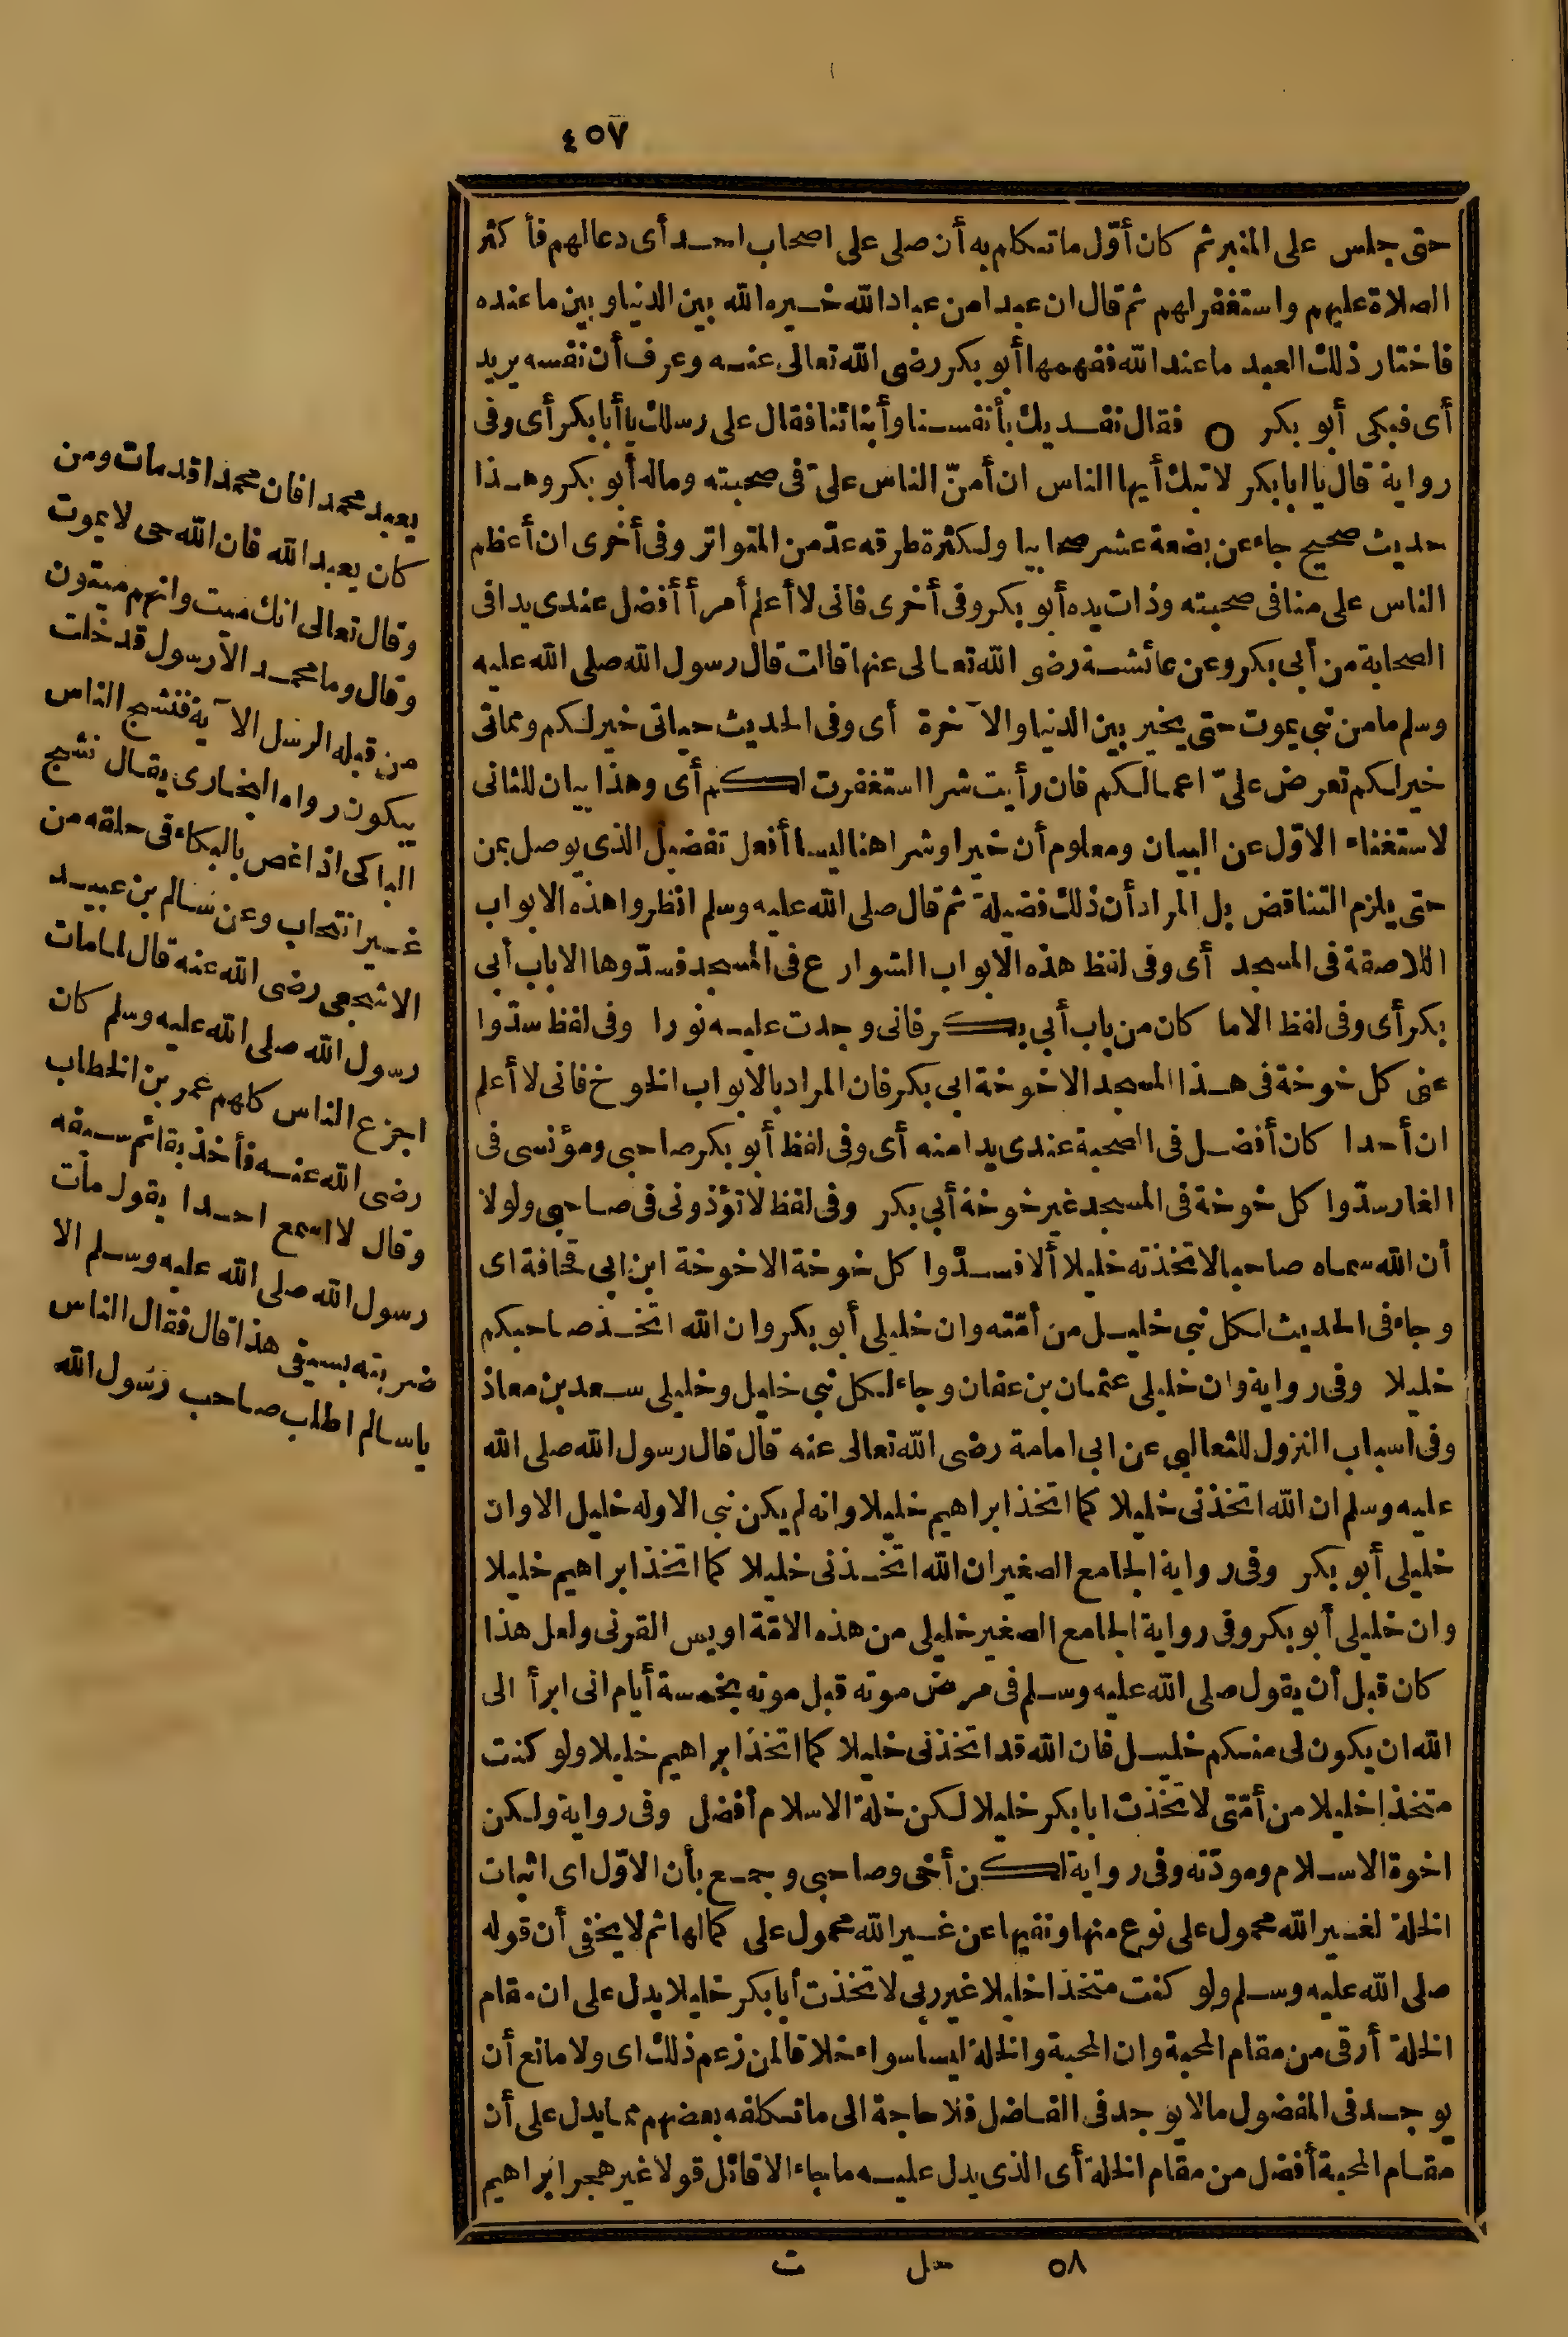 ٤٥٧
حتى جلس على المنبر ثم كان أوّل ما تكلم به أن صلى على اصحاب احد أى دعا لهم فأكثر
الصلاة عليهم واستغفر لهم ثم قال ان عبدا من عباد الله خيره الله بين الدنيا وبين ما عنده
فاختار ذلك العبد ما عند الله ففهمها أبو بكر رضى الله تعالى عنه وعرف أن نفسه يريد
أى فبكى أبو بكر ○ فقال نفديك بأنفسنا وأبنائنا فقال على رسلك يا أبا بكر أى وفى
رواية قال يا ابا بكر لا تبك أيها الناس ان أمنّ الناس علىّ فى صحبته وماله أبو بكر وهذا
حديث صحيح جاء عن بضعة عشر صحابيا ولكثرة طرقه عدّ من المتواتر وفى أخرى ان أعظم
الناس على منا فى صحبته وذات يده أبو بكر وفى أخرى فانى لا أعلم أمرأ أفضل عندى يدا فى
الصحابة من أبى بكر وعن عائشة رضى الله تعالى عنها قالت قال رسول الله صلى الله عليه
وسلم ما من نبى يموت حتى يخير بين الدنيا والآخرة أى وفى الحديث حياتى خير لكم ومماتى
خير لكم تعرض علىّ اعمالكم فان رأيت شرا استغفرت لكم أى وهذا بيان للثانى
لاستغناء الاوّل عن البيان ومعلوم أن خيرا وشرا هنا ليسا أفعل تفضيل الذى يوصل بمن
حتى يلزم التناقض بل المراد أن ذلك فضيلة ثم قال صلى الله عليه وسلم انظروا هذه الابواب
اللاصقة فى المسجد أى وفى لفظ هذه الابواب الشوارع فى المسجد فسدّوها الا باب أبى
بكر أى وفى لفظ الا ما كان من باب أبى بكر فانى وجدت عليه نورا وفى لفظ سدّوا
عنى كل خوخة فى هذا المسجد الا خوخة ابى بكر فان المراد بالابواب الخوخ فانى لا أعلم
ان أحدا كان أفضل فى الصحبة عندى يدا منه أى وفى لفظ أبو بكر صاحبى ومؤنسى فى
الغار سدّوا كل خوخة فى المسجد غير خوخة أبى بكر وفى لفظ لا تؤذونى فى صاحبى ولولا
أن الله سماه صاحبا لاتخذته خليلا ألا فسدّوا كل خوخة الا خوخة ابن ابى قحافة اى
وجاء فى الحديث لكل نبى خليل من أمّته وان خليلى أبو بكر وان الله اتخذ صاحبكم
خليلا وفى رواية وان خليلى عثمان بن عفان وجاء لكل نبى خليل وخليلى سعد بن معاذ
وفى اسباب النزول للثعالبى عن ابى امامة رضى الله تعالى عنه قال قال رسول الله صلى الله
عليه وسلم ان الله اتخذنى خليلا كما اتخذ ابراهيم خليلا وانه لم يكن نبى الا وله خليل الا وان
خليلى أبو بكر وفى رواية الجامع الصغير ان الله اتخذنى خليلا كما اتخذ ابراهيم خليلا
وان خليلى أبو بكر وفى رواية الجامع الصغير خليلى من هذه الامّة اويس القرنى ولعل هذا
كان قبل أن يقول صلى الله عليه وسلم فى مرض موته قبل موته بخمسة أيام انى ابرأ الى
الله ان يكون لى منكم خليل فان الله قد اتخذنى خليلا كما اتخذ ابراهيم خليلا ولو كنت
متخذا خليلا من أمّتى لاتخذت ابا بكر خليلا لكن خلة الاسلام أفضل وفى رواية ولكن
اخوة الاسلام ومودّته وفى رواية لكن أخى وصاحبى وجمع بأن الاوّل اى اثبات
الخلة لغير الله محمول على نوع منها ونفيها عن غير الله محمول على كمالها ثم لا يخفى أن قوله
صلى الله عليه وسلم ولو كنت متخذا خليلا غير ربى لاتخذت أبا بكر خليلا يدل على ان مقام
الخلة أرقى من مقام المحبة وان المحبة والخلة ليسا سواء خلافا لمن زعم ذلك اى ولا مانع أن
يوجد فى المفضول ما لا يوجد فى الفاضل فلا حاجة الى ما تكلفه بعضهم مما يدل على أن
مقام المحبة أفضل من مقام الخلة أى الذى يدل عليه ما جاء الا قائل قولا غير هجر ابراهيم
٥٨ حل ت
يعبد محمدا فان محمدا قد مات ومن
كان يعبد الله فان الله حى لا يموت
وقال تعالى انك ميت وانهم ميتون
وقال وما محمد الا رسول قد خلت
من قبله الرسل الآية فنشج الناس
يبكون رواه البخارى يقال نشج
الباكى اذا غص بالبكاء فى حلقه من
غير انتحاب وعن سالم بن عبيد
الاشجعى رضى الله عنه قال لما مات
رسول الله صلى الله عليه وسلم كان
اجزع الناس كلهم عمر بن الخطاب
رضى الله عنه فأخذ بقائم سيفه
وقال لا اسمع احدا يقول مات
رسول الله صلى الله عليه وسلم الا
ضربته بسيفى هذا قال فقال الناس
يا سالم اطلب صاحب رسول الله